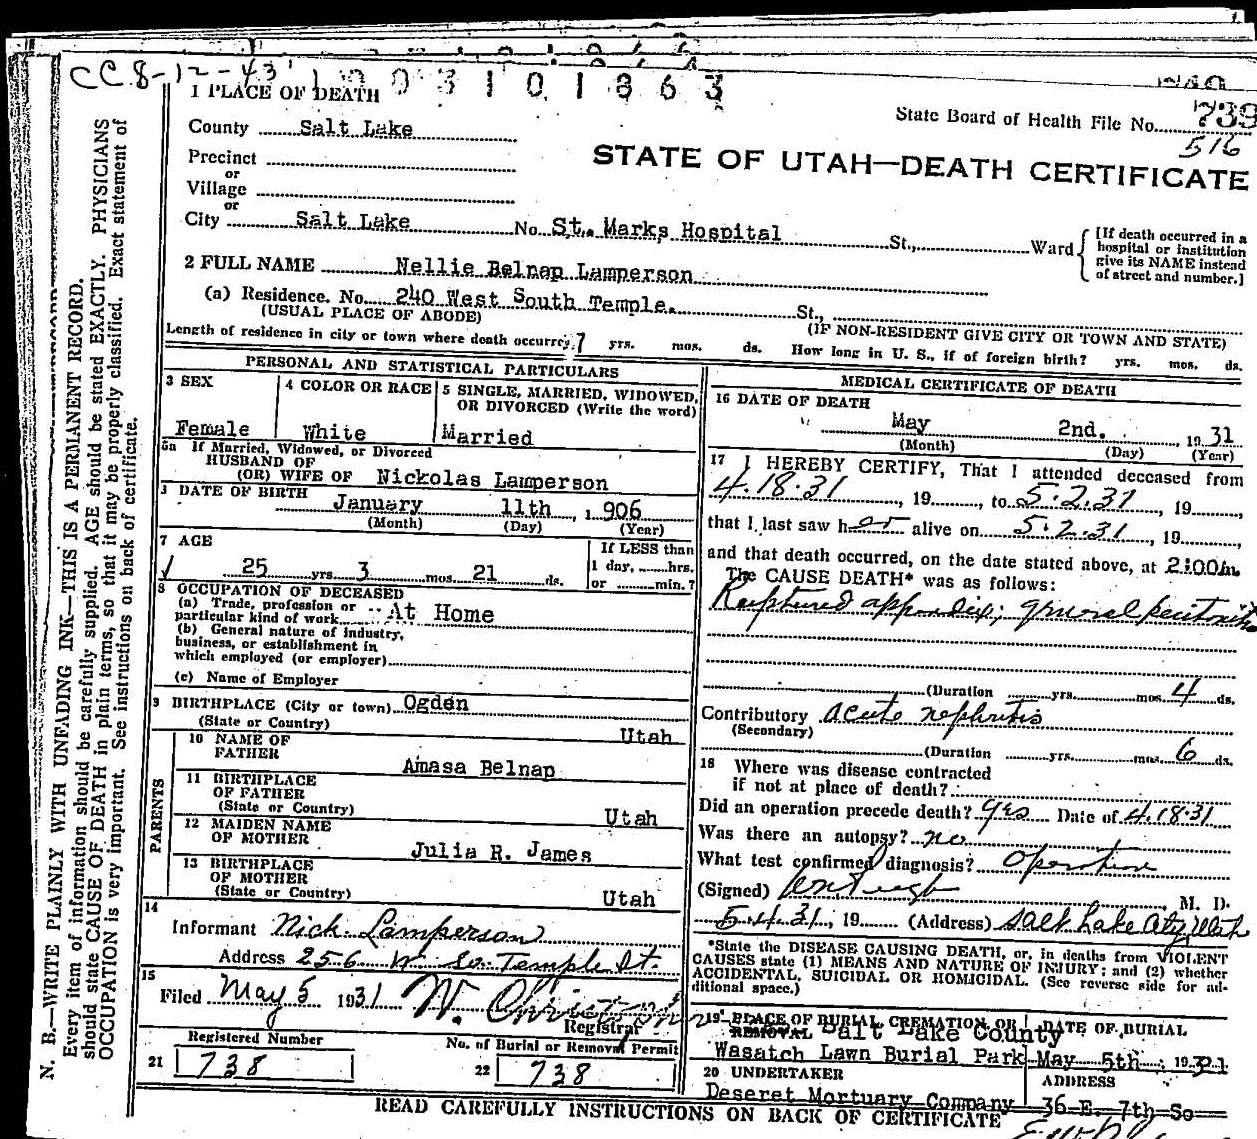 CC 8-12-43
1 0 0 3 1 0 1 8 6 3
1 PLACE OF DEATH
State Board of Health File No. 739
516
County Salt Lake
STATE OF UTAH—DEATH CERTIFICATE
Precinct
or
Village
or
City Salt Lake No. St. Marks Hospital St., Ward
[If death occurred in a
hospital or institution
give its NAME instead
of street and number.]
2 FULL NAME Nellie Belnap Lamperson
(a) Residence. No. 240 West South Temple. St.,
(USUAL PLACE OF ABODE) (IF NON-RESIDENT GIVE CITY OR TOWN AND STATE)
Length of residence in city or town where death occurred 7 yrs. mos. ds. How long in U. S., if of foreign birth? yrs. mos. ds.
PERSONAL AND STATISTICAL PARTICULARS
3 SEX
Female
4 COLOR OR RACE
White
5 SINGLE, MARRIED, WIDOWED,
OR DIVORCED (Write the word)
Married
5a If Married, Widowed, or Divorced
HUSBAND OF
(OR) WIFE OF Nickolas Lamperson
DATE OF BIRTH
January 11th , 1 906
(Month) (Day) (Year)
7 AGE
25 yrs. 3 mos. 21 ds.
If LESS than
1 day, hrs.
or min. ?
8 OCCUPATION OF DECEASED
(a) Trade, profession or
particular kind of work At Home
(b) General nature of industry,
business, or establishment in
which employed (or employer)
(c) Name of Employer
9 BIRTHPLACE (City or town) Ogden
(State or Country) Utah
PARENTS
10 NAME OF
FATHER Amasa Belnap
11 BIRTHPLACE
OF FATHER
(State or Country) Utah
12 MAIDEN NAME
OF MOTHER Julia R. James
13 BIRTHPLACE
OF MOTHER
(State or Country) Utah
14
Informant Nick Lamperson
Address 256 W. So. Temple St.
15
Filed May 5 1931 W. Christ
Registrar
Registered Number
21 738
No. of Burial or Removal Permit
22 738
MEDICAL CERTIFICATE OF DEATH
16 DATE OF DEATH
May 2nd. , 19 31
(Month) (Day) (Year)
17 I HEREBY CERTIFY, That I attended deceased from
4.18.31 , 19 , to 5.2.31 , 19 ,
that I last saw her alive on 5.2.31 , 19 ,
and that death occurred, on the date stated above, at 2:00A m.
The CAUSE DEATH* was as follows:
Ruptured appendix; general peritonitis
(Duration yrs. mos. 4 ds.
Contributory acute nephritis
(Secondary)
(Duration yrs. mos. 6 ds.
18 Where was disease contracted
if not at place of death?
Did an operation precede death? yes Date of 4.18.31
Was there an autopsy? no
What test confirmed diagnosis? Operation
(Signed) , M. D.
5.4.31, 19 (Address) Salt Lake City, Utah
*State the DISEASE CAUSING DEATH, or, in deaths from VIOLENT
CAUSES state (1) MEANS AND NATURE OF INJURY; and (2) whether
ACCIDENTAL, SUICIDAL OR HOMICIDAL. (See reverse side for ad-
ditional space.)
19 PLACE OF BURIAL CREMATION OR
REMOVAL Salt Lake County
Wasatch Lawn Burial Park
DATE OF BURIAL
May 5th 1931
20 UNDERTAKER
Deseret Mortuary Company
ADDRESS
36 E. 7th So
READ CAREFULLY INSTRUCTIONS ON BACK OF CERTIFICATE
N. B.—WRITE PLAINLY WITH UNFADING INK—THIS IS A PERMANENT RECORD.
Every item of information should be carefully supplied. AGE should be stated EXACTLY. PHYSICIANS
should state CAUSE OF DEATH in plain terms, so that it may be properly classified. Exact statement of
OCCUPATION is very important. See instructions on back of certificate.